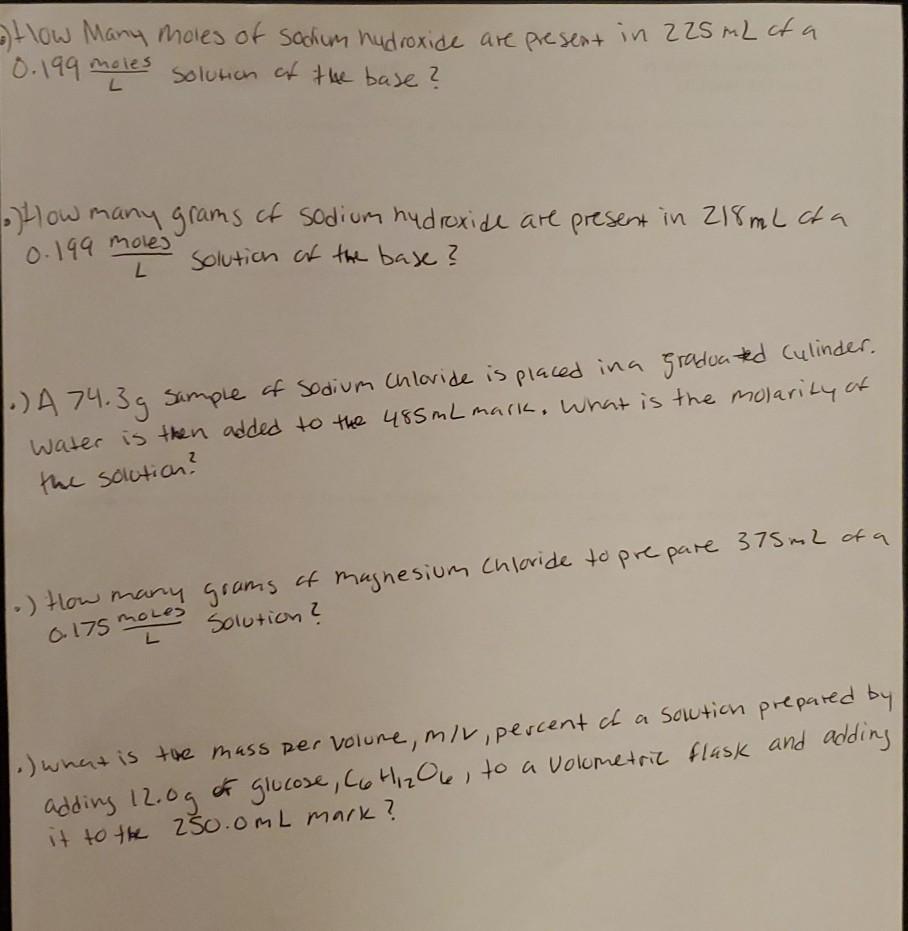 .) How Many moles of sodium hydroxide are present in 225 mL of a
0.199 moles/L solution of the base?
.) How many grams of sodium hydroxide are present in 218 mL of a
0.199 moles/L solution of the base?
.) A 74.3g sample of sodium chloride is placed in a graduated cylinder.
Water is then added to the 485 mL mark. What is the molarity of
the solution?
.) How many grams of magnesium chloride to prepare 375 mL of a
0.175 moles/L solution?
.) what is the mass per volume, m/v, percent of a solution prepared by
adding 12.0g of glucose, C6H12O6, to a volumetric flask and adding
it to the 250.0 mL mark?